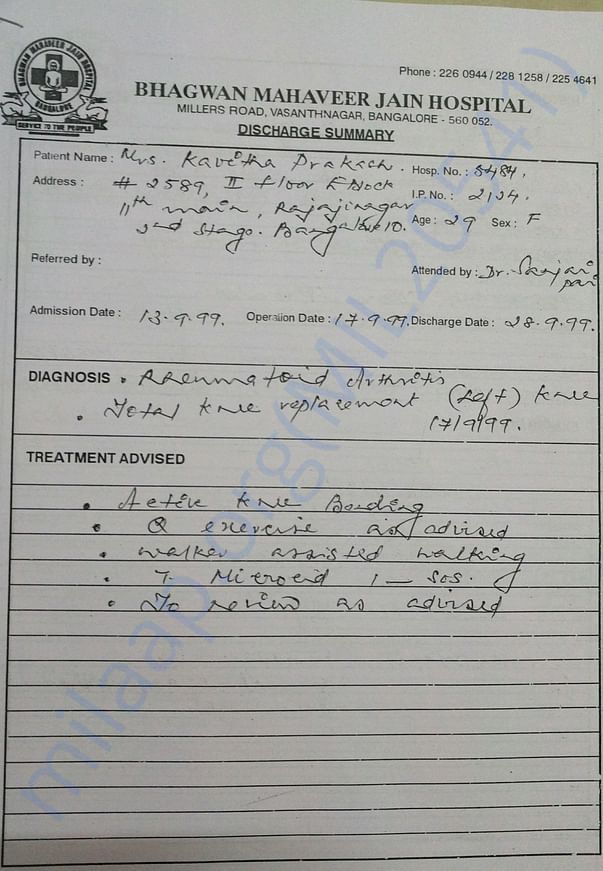 Phone : 226 0944 / 228 1258 / 225 4641
BHAGWAN MAHAVEER JAIN HOSPITAL
BANGALORE
SERVICE TO THE PEOPLE
BHAGWAN MAHAVEER JAIN HOSPITAL
MILLERS ROAD, VASANTHNAGAR, BANGALORE - 560 052.
DISCHARGE SUMMARY
Patient Name : Mrs. Kavitha Prakash. Hosp. No. : 8484.
Address : # 2589, II floor E Block I.P. No. : 2124.
11th main, Rajajinagar Age : 29 Sex : F
2nd Stage. Bangalore 10.
Referred by : Attended by : Dr. Sanjai Pai
Admission Date : 13.9.99. Operation Date : 17.9.99. Discharge Date : 28.9.99.
DIAGNOSIS • Rheumatoid Arthritis
• Total knee replacement (Left) knee
17/9/99.
TREATMENT ADVISED
• Active knee Bending
• Q exercise as advised
• walker assisted walking
• T. Microcid 1 — SOS.
• To review as advised
milaap.org(MIL20541)